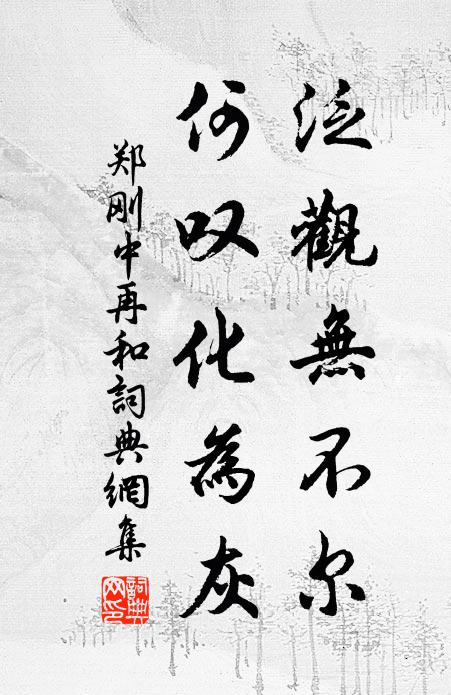 泛觀無不尔
何叹化為灰
郑刚中再和詞典網集